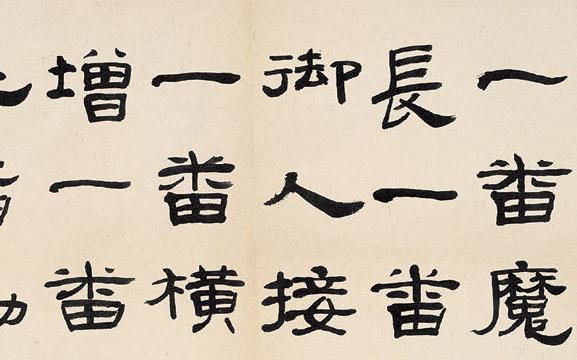 一番魔
長一番
御人接
一番橫
增一番